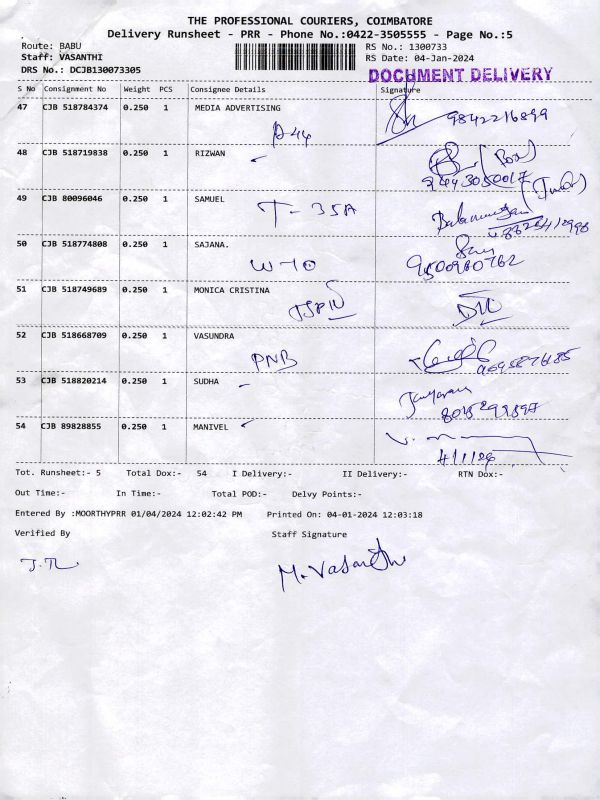 THE PROFESSIONAL COURIERS, COIMBATORE
Delivery Runsheet - PRR - Phone No.:0422-3505555 - Page No.:5
Route: BABU RS No.: 1300733
Staff: VASANTHI RS Date: 04-Jan-2024
DRS No.: DCJB130073305
DOCUMENT DELIVERY
S No Consignment No Weight PCS Consignee Details Signature
47 CJB 518784374 0.250 1 MEDIA ADVERTISING
A-44 9842216899
48 CJB 518719838 0.250 1 RIZWAN
49 CJB 80096046 0.250 1 SAMUEL
T-35A
50 CJB 518774808 0.250 1 SAJANA.
W-10 9500980762
51 CJB 518749689 0.250 1 MONICA CRISTINA
52 CJB 518668709 0.250 1 VASUNDRA
PNB
53 CJB 518820214 0.250 1 SUDHA
54 CJB 89828855 0.250 1 MANIVEL
Tot. Runsheet:- 5 Total Dox:- 54 I Delivery:- II Delivery:- RTN Dox:-
Out Time:- In Time:- Total POD:- Delvy Points:-
Entered By :MOORTHYPRR 01/04/2024 12:02:42 PM Printed On: 04-01-2024 12:03:18
Verified By Staff Signature
M. Vasanthi